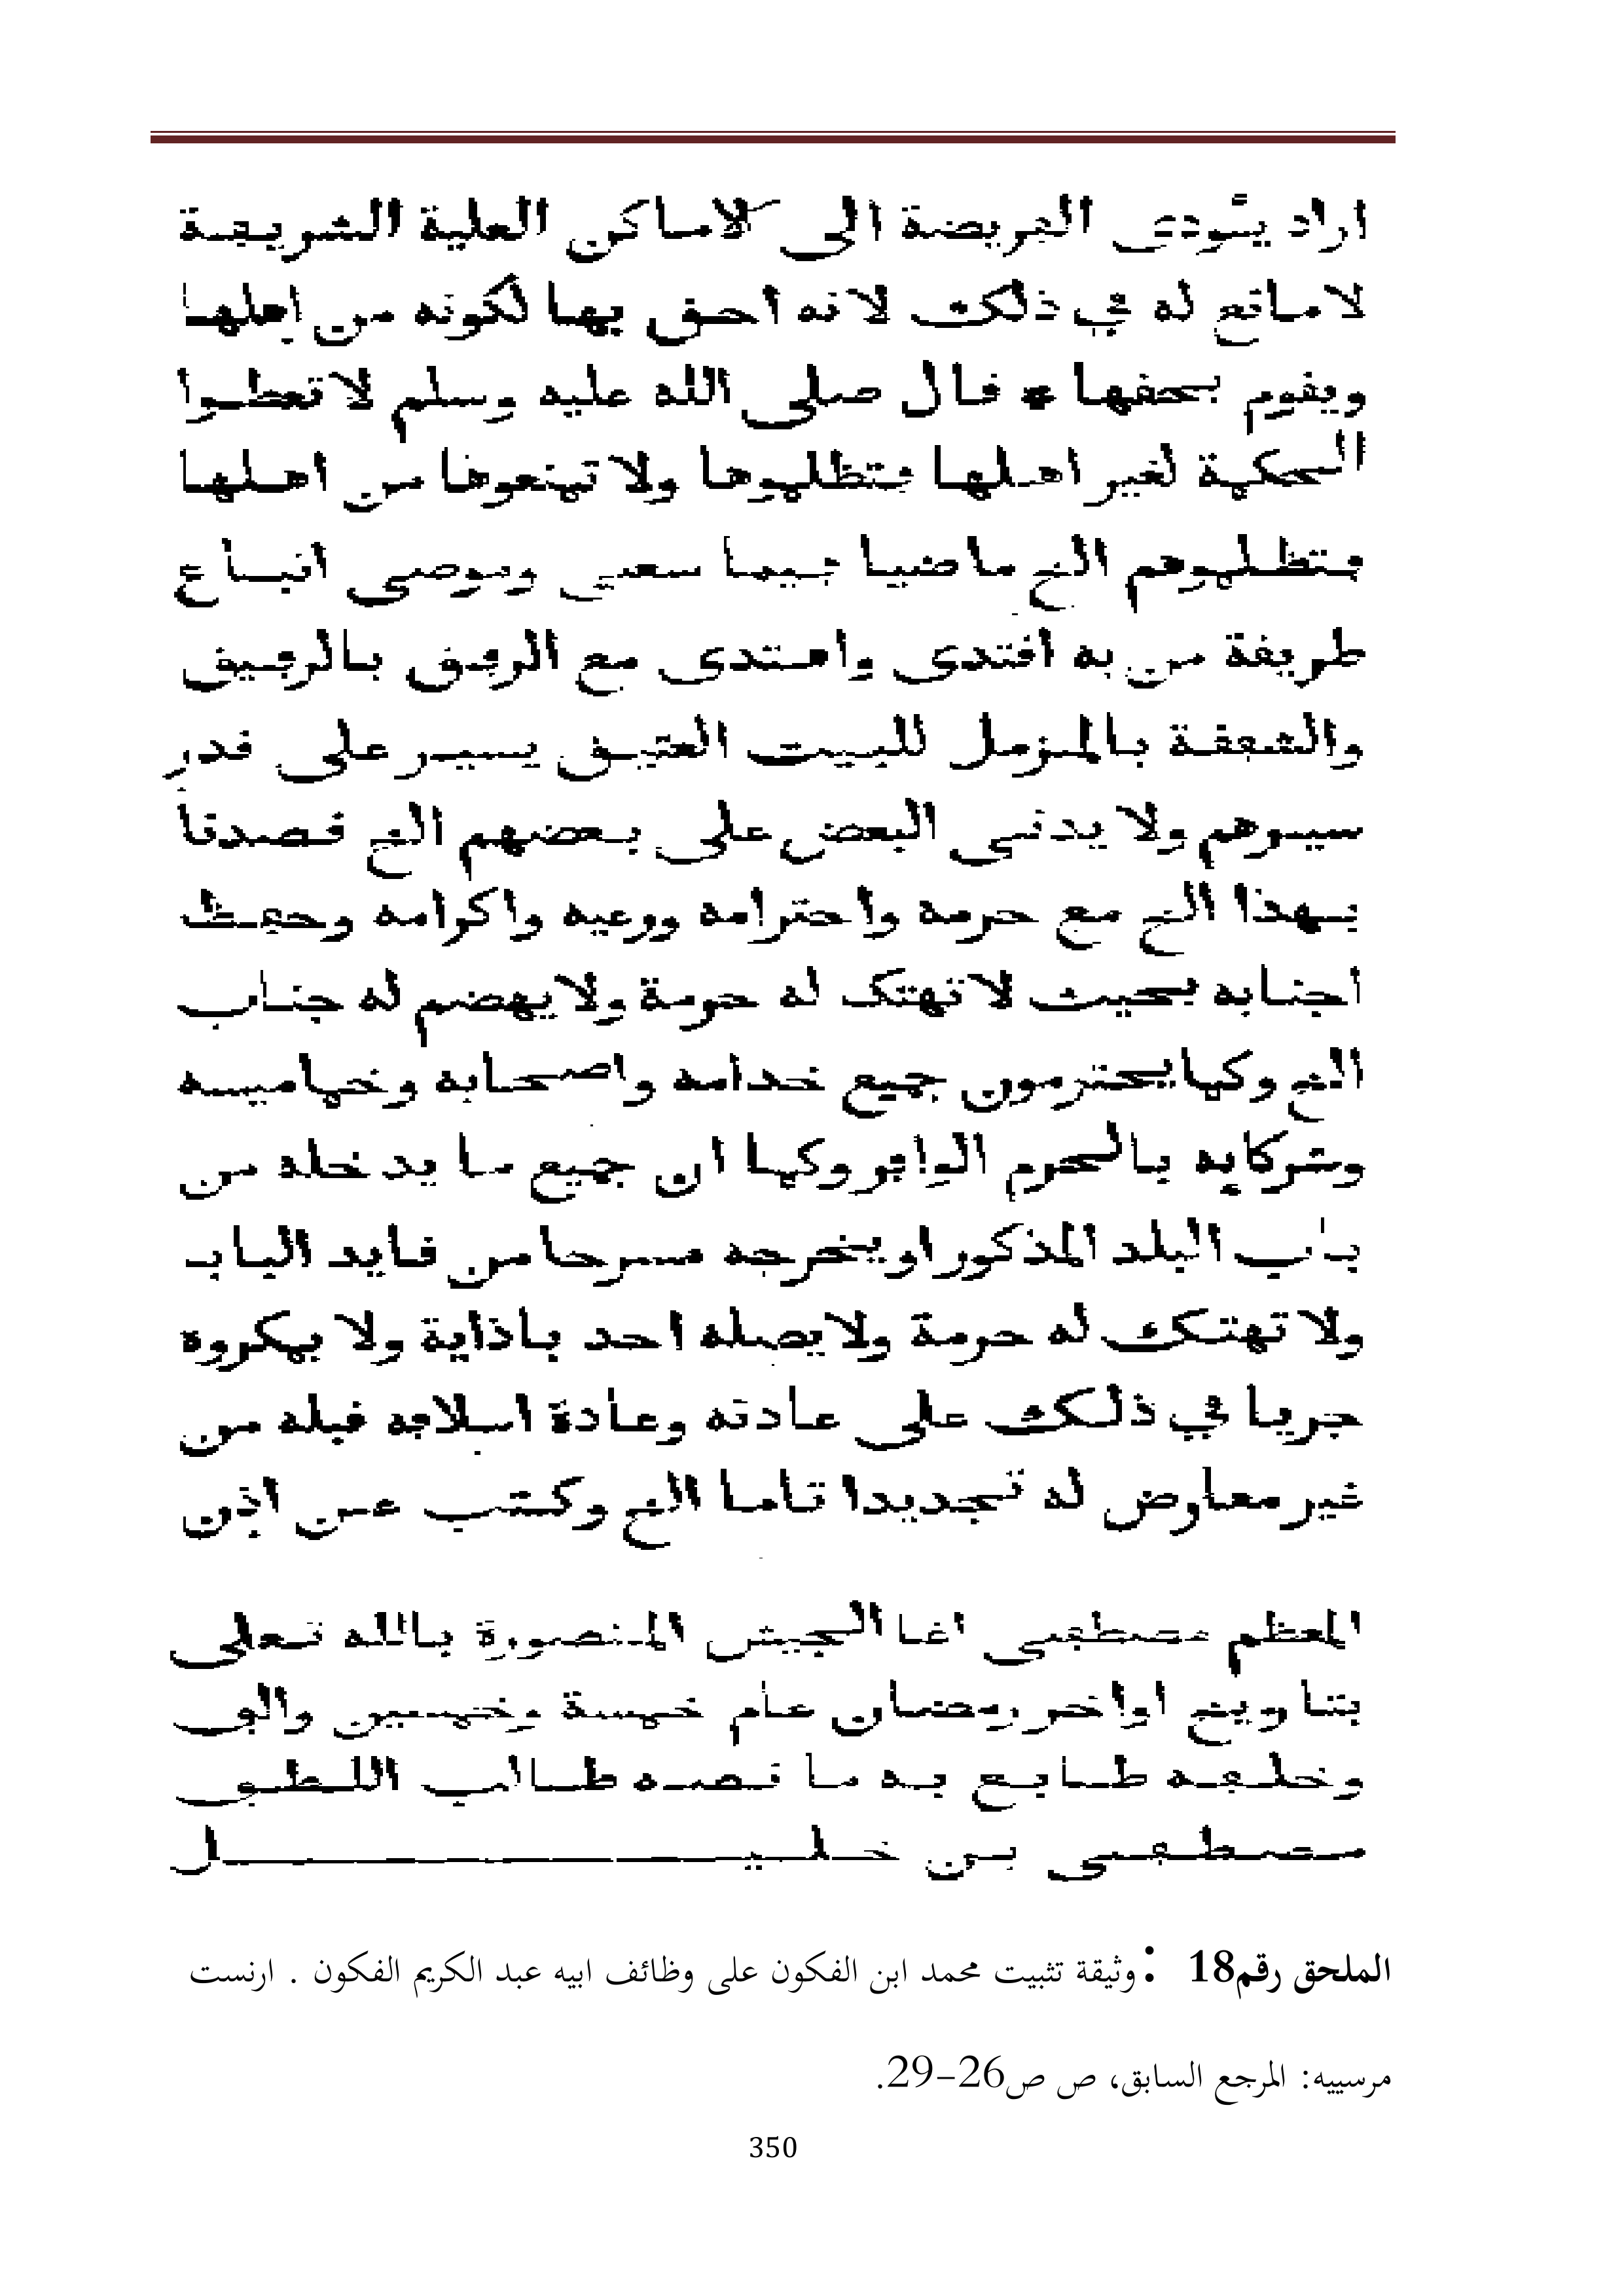 اراد يـؤدى الفريضة الى الاماكن العلية الشريفة
لا مانع له في ذلك لانه احق بها لكونه من اهلها
ويقوم بحقها * قال صلى الله عليه وسلم لا تعطوا
الحكمة لغير اهلها فتظلموها ولا تمنعوها من اهلها
فتظلموهم الخ ماضيا فيما سعى ويوصى اتباع
طريقة من به اقتدى واهتدى مع الرفق بالرفيق
والشفقة بالمزمل للبيت العتيق يسير على قدر
سيرهم ولا يدنى البعض على بعضهم الخ قصدنا
بهذا الخ مع حرمه واحترامه ورعيه واكرامه وحفظ
اجنابه بحيث لا تهتك له حرمة ولا يهضم له جناب
الخ وكما يحترمون جميع خدامه واصحابه وخماميسه
وشركايه بالحرم الوافر وكما ان جميع ما يدخله من
باب البلد المذكور او يخرجه مسرحا من قايد الباب
ولا تهتك له حرمة ولا يصله احد باذاية ولا بمكروه
جريا في ذلك على عادته وعادة اسلافه قبله من
غير معارض له تجديدا تاما الخ وكتب عن اذن
المعظم مصطفى اغا الجيش المنصورة بالله تعلى
بتاريخ اواخر رمضان عام خمسة وخمسين والف
وخلفه طابع به ما نصه طالب اللطف
مصطفى بن خليل
الملحق رقم18 : وثيقة تثبيت محمد ابن الفكون على وظائف ابيه عبد الكريم الفكون . ارنست
مرسييه: المرجع السابق، ص ص26-29.
350